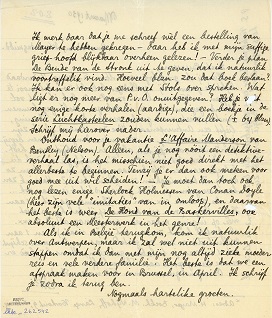 Ik merk daar dat je me schreef wel een bestelling van
Mayer te hebben gekregen – daar heb ik met mijn suffige
griep-hoofd blijkbaar overheen gelezen! – Verder je plan
De Bende van de Stronk uit te geven, dat ik natuurlijk
voortreffelijk vind. Hoeveel plm. zou dat boek beslaan?
Ik kan er ook nog eens met Stols over spreken. Wat
ligt er nog meer van F.v.O. onuitgegeven? Heb je
nog enige korte verhalen (aardige), die een boekje in de
serie Luchtkasteelen zouden kunnen vullen (± by
schrijf mij hierover nader.
Onthoud voor je vakantie L'Affaire Manderson van
Bentley (Nelson). Alleen, als je nog nooit een detektive-
verhaal las, is het misschien niet goed direkt met het
allerbeste te beginnen. Tenzij je er dan ook meteen voor
goed mee uit wil scheiden! – Je moet dan toch ook
nog lezen enige Sherlock Holmessen van Conan Doyle
(hier zijn vele "imitaties" van in omloop), en daarvan
het beste is weer De Hond van de Baskervilles, ook
absoluut een meesterwerk in het genre!
Als ik in België terugkom, kom ik natuurlijk
over Antwerpen, maar ik zal wel niet uit kunnen
stappen omdat ik dan met mijn nog altijd zieke moeder
reis en vele verdere familie. Het beste is dat we een
afspraak maken voor in Brussel, in April. Ik schrijf
je zodra ik terug ben.
Nogmaals hartelike groeten.